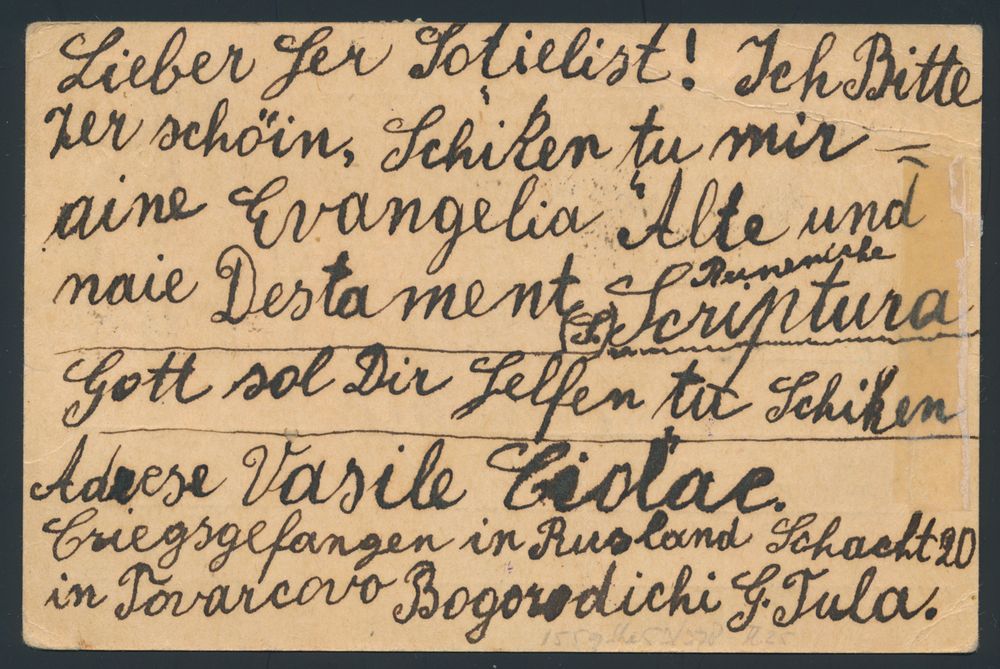 Lieber Her Sotielist! Ich Bitte
zer schöin, Schiken tu mir –
aine Evangelia "Alte und
naie Destament (S.) Scriptura
Rumeniche
Gott sol Dir Helfen tu Schiken
Adrese Vasile
Criegsgefangen in Rusland Schacht 20
in Tovarcovo Bogorodichi G. Tula.